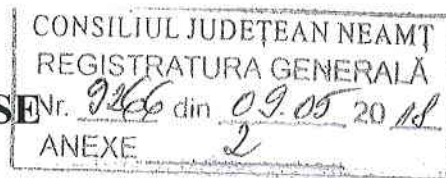 CONSILIUL JUDEȚEAN NEAMȚ
REGISTRATURA GENERALĂ
SE Nr. 9266 din 09.05 2018
ANEXE 2